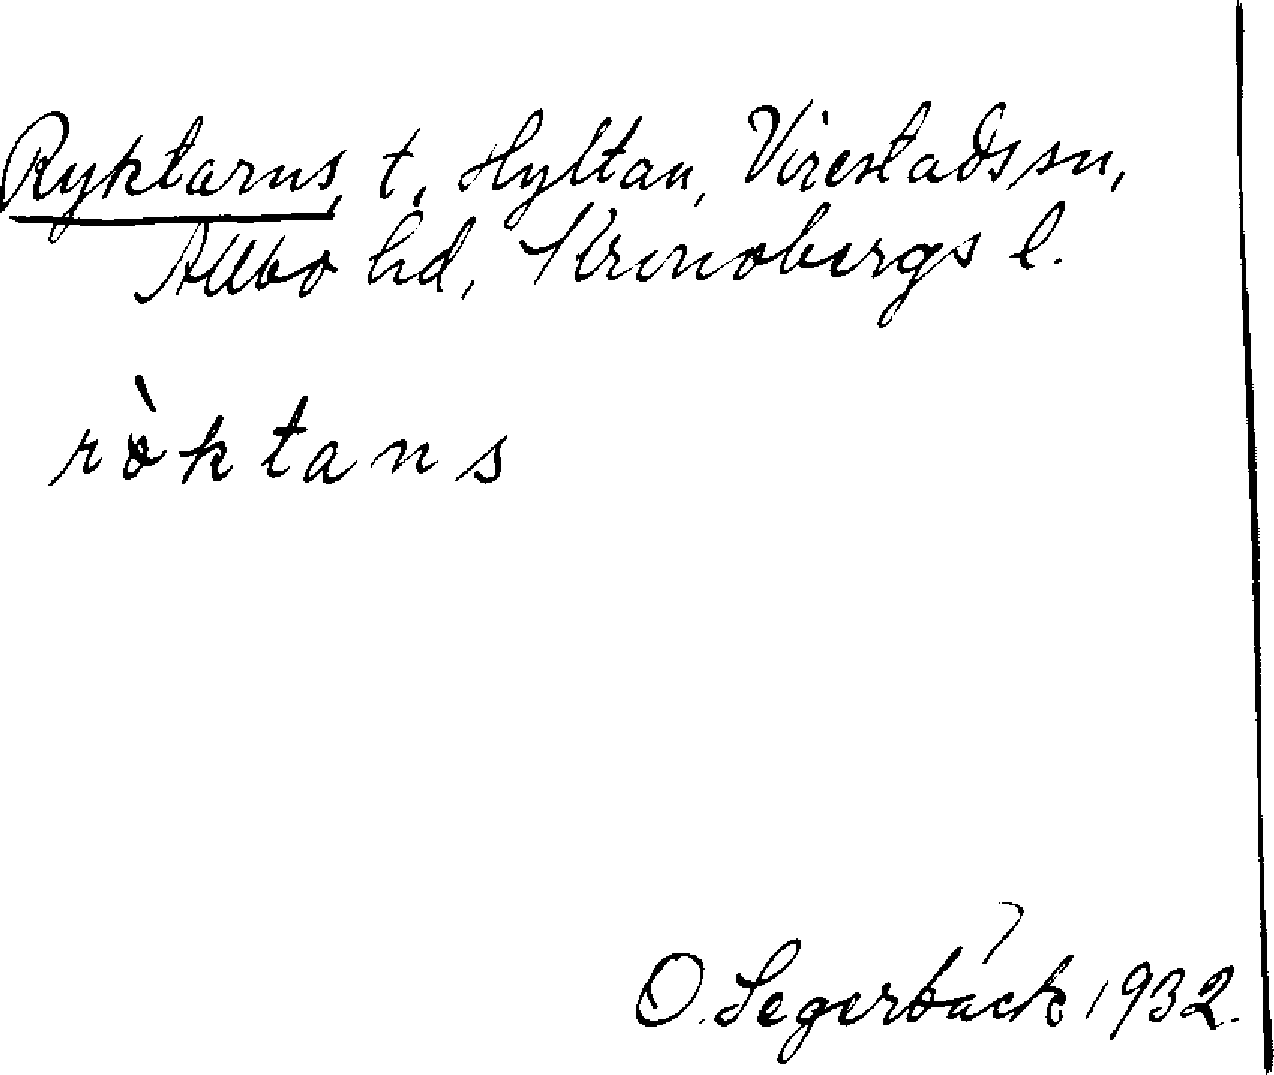 Ryktarns, t. Hyltan, Virestads sn,
Allbo hd, Kronobergs l.
ròktans
O. Segerbäck 1932.